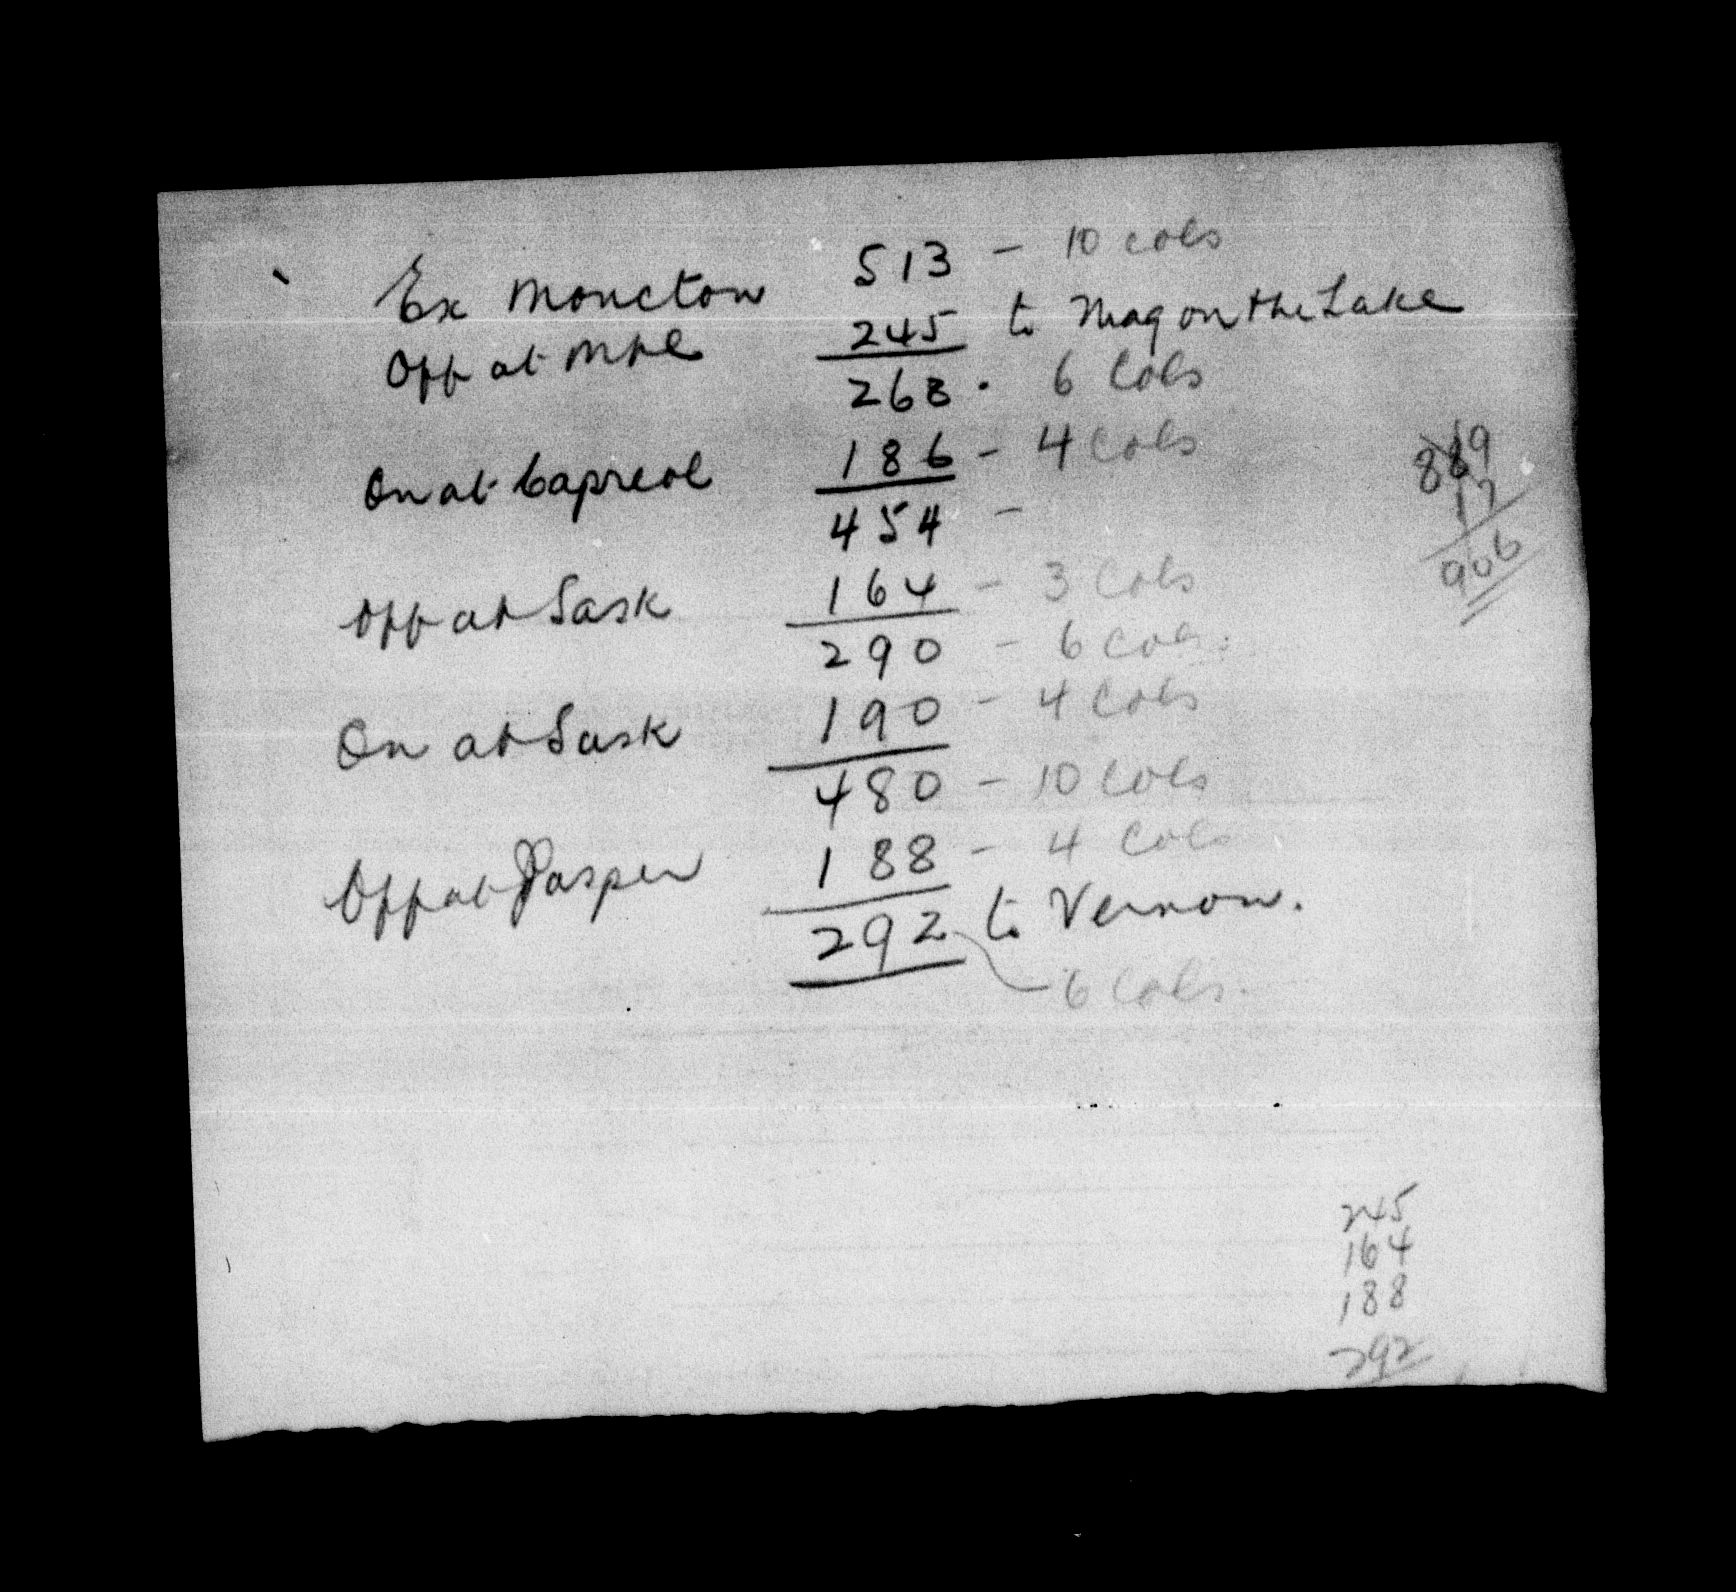 Ex Moncton 513 - 10 cols
Off at Mtl 245 to Niag on the Lake
268. 6 Cols
On at Capreol 186 - 4 Cols
454 -
Off at Sask 164 - 3 Cols
290 - 6 Cols.
On at Sask 190 - 4 Cols
480 - 10 Cols
Off at Jasper 188 - 4 Cols
292 to Vernon.
6 Cols.
889
17
906
245
164
188
292